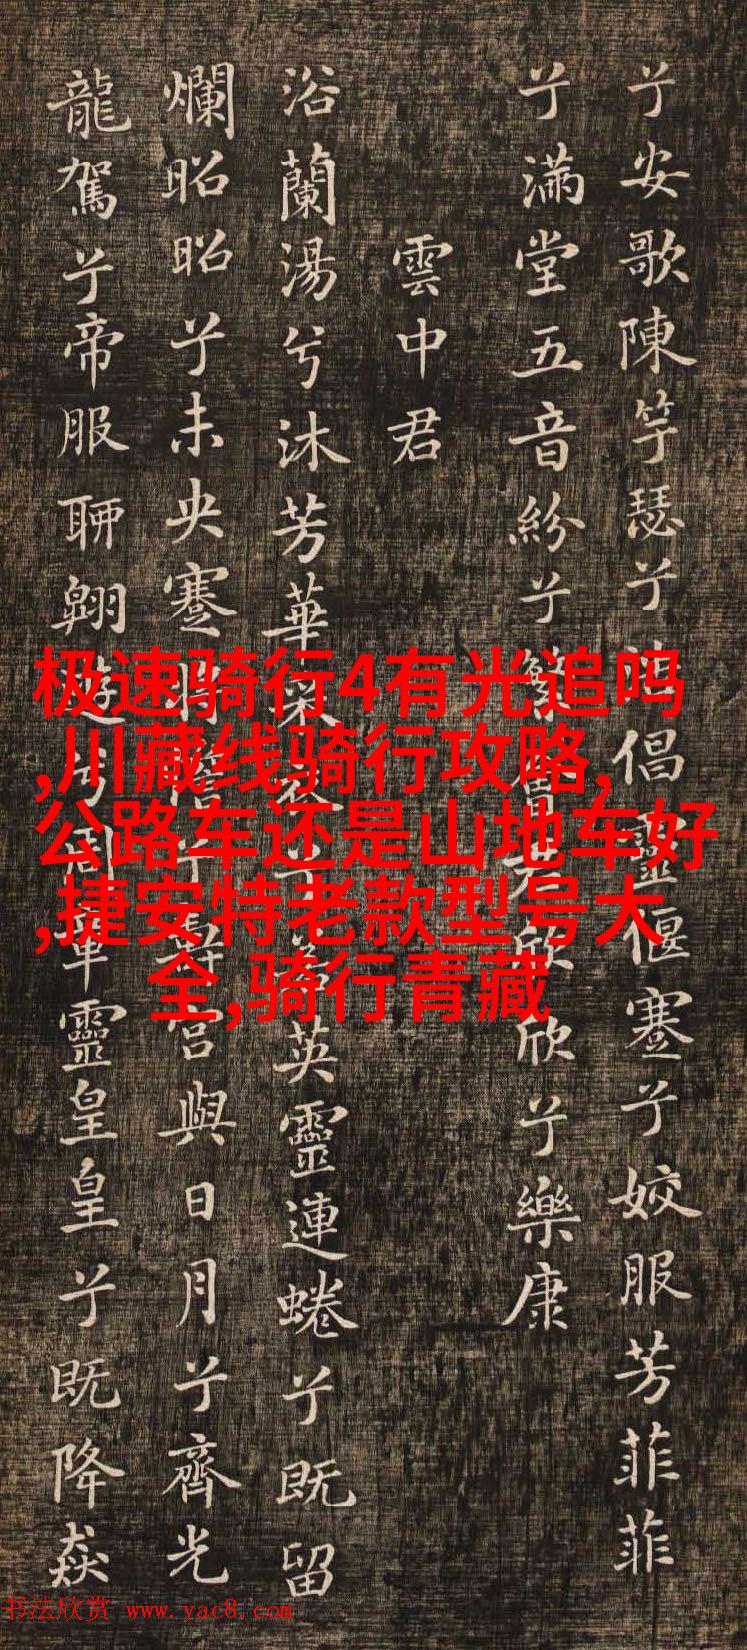 兮安歌陳竽瑟兮浩倡靈偃蹇兮姣服芳菲菲
兮滿堂五音紛兮繁會君欣欣兮樂康
雲中君
浴蘭湯兮沐芳華采衣兮若英靈連蜷兮既留
爛昭昭兮未央蹇將憺兮壽宮與日月兮齊光
龍駕兮帝服聊翱遊兮周章靈皇皇兮既降猋
极速骑行4有光追吗
,川藏线骑行攻略,
公路车还是山地车好
,捷安特老款型号大
全,骑行青藏
书法欣赏 www.yac8.com